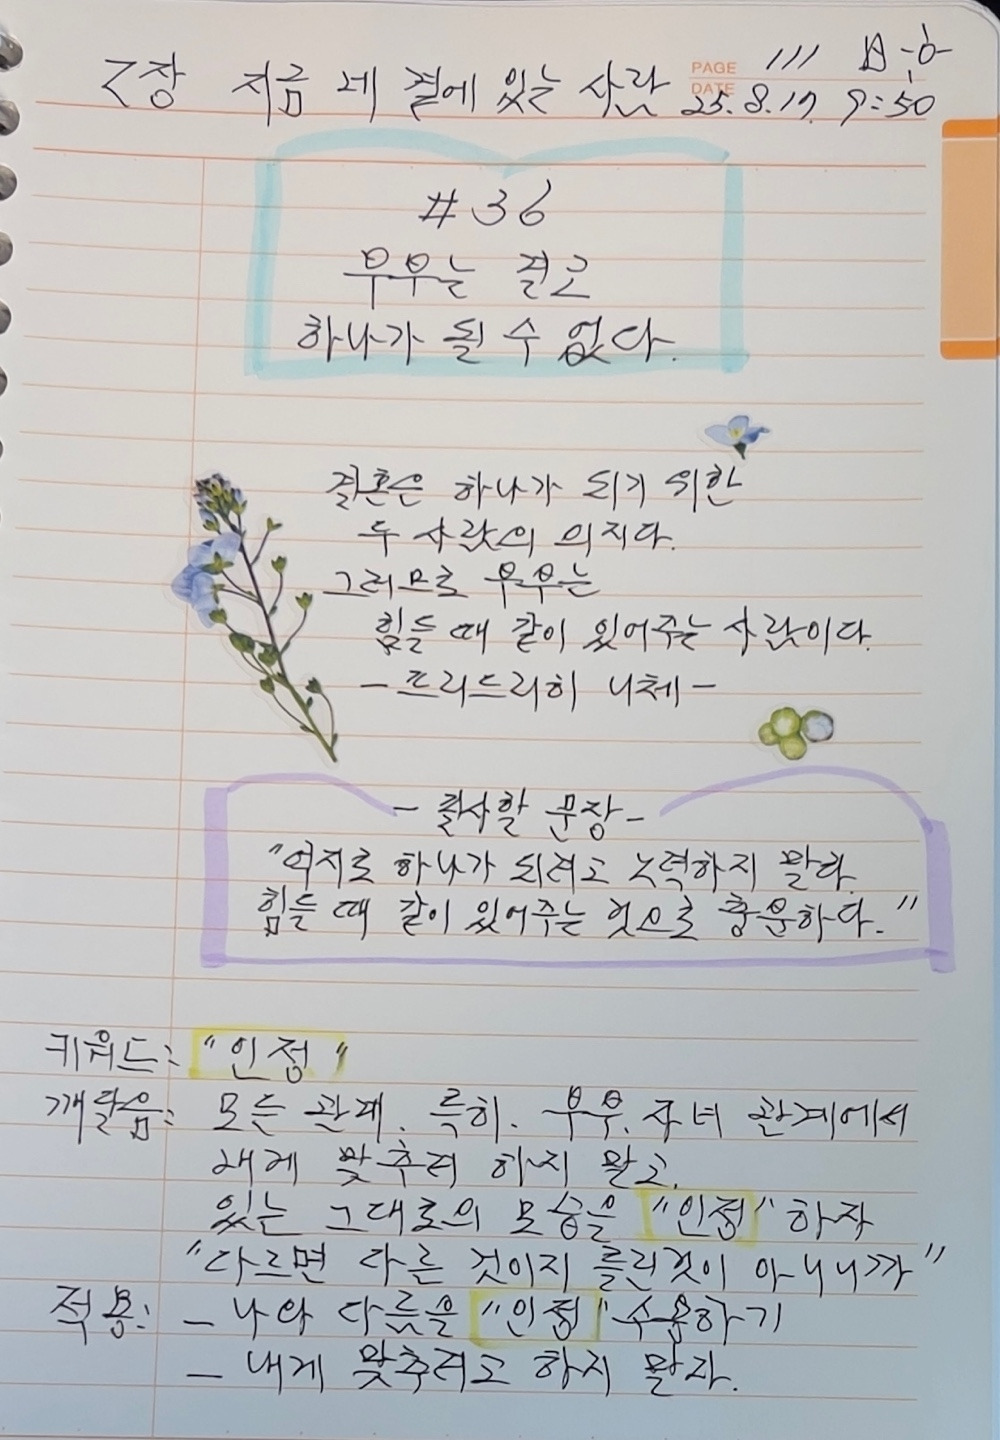 2장 지금 네 곁에 있는 사람
PAGE 111
DATE 25. 8. 17. 9:50
#36
부부는 결코
하나가 될 수 없다.
결혼은 하나가 되기 위한
두 사람의 의지다.
그러므로 부부는
힘들 때 같이 있어주는 사람이다.
- 프리드리히 니체 -
- 필사할 문장 -
"억지로 하나가 되려고 노력하지 말라.
힘들 때 같이 있어주는 것으로 충분하다."
키워드: "인정"
깨달음: 모든 관계. 특히. 부부. 자녀 관계에서
내게 맞추려 하지 말고.
있는 그대로의 모습을 "인정" 하자
"다르면 다른 것이지 틀린것이 아니니까"
적용: - 나와 다름을 "인정" 수용하기
- 내게 맞추려고 하지 말자.